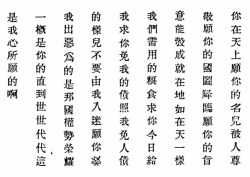 你在天上願你的名兒被人尊
敬願你的國圖降臨願你的旨
意能彀成就在地如在天一樣
我們需用的糧食求你今日給
我求你免我的債照我免人債
的樣兒不要由我入迷願你
我出惡爲的是邦國權勢榮耀
一概是你的直到世世代代這
是我心所願的啊